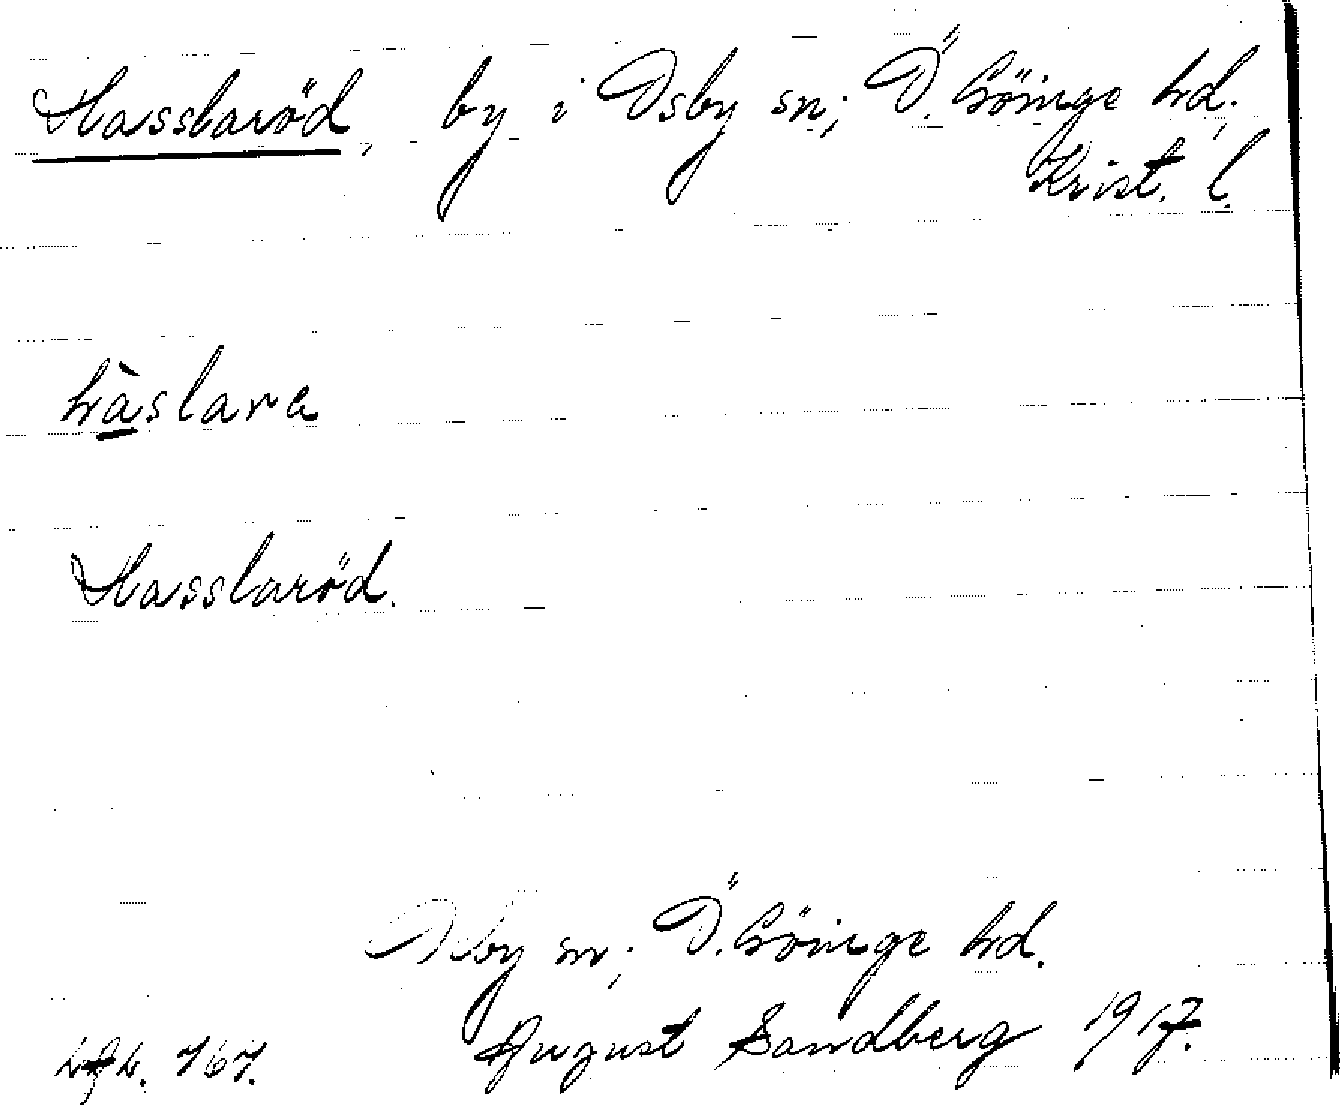 Hasslaröd, by i Osby sn; Ö. Göinge hd,
Krist. l.
hàslara
Hasslaröd.
Osby sn; Ö. Göinge hd.
August Sandberg 1917.
767.